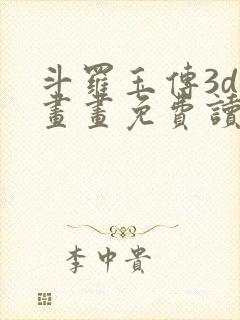 斗羅玉傳3d
畫畫免費讀
李中貴